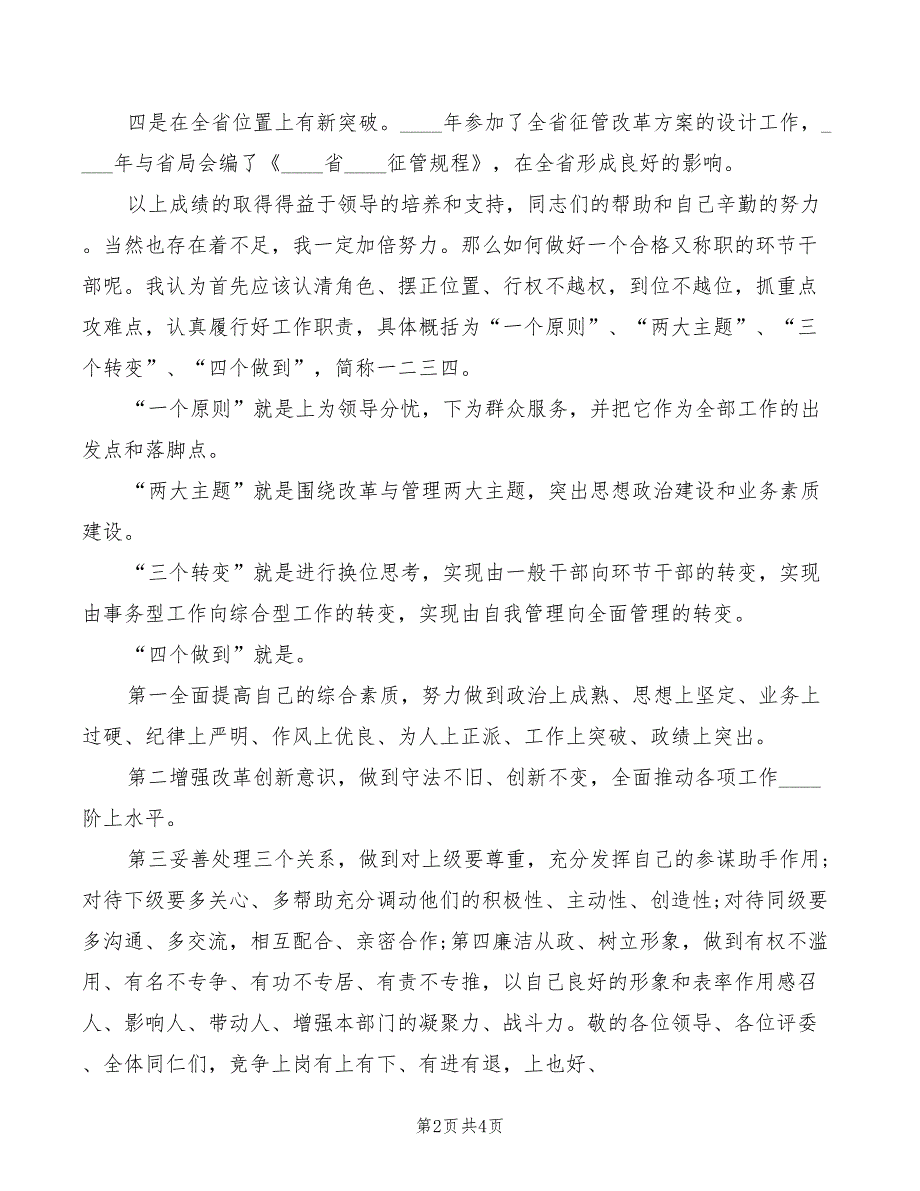 四是在全省位置上有新突破。____年参加了全省征管改革方案的设计工作，_
___年与省局会编了《____省____征管规程》，在全省形成良好的影响。
以上成绩的取得得益于领导的培养和支持，同志们的帮助和自己辛勤的努力
。当然也存在着不足，我一定加倍努力。那么如何做好一个合格又称职的环节干
部呢。我认为首先应该认清角色、摆正位置、行权不越权，到位不越位，抓重点
攻难点，认真履行好工作职责，具体概括为“一个原则”、“两大主题”、“三
个转变”、“四个做到”，简称一二三四。
“一个原则”就是上为领导分忧，下为群众服务，并把它作为全部工作的出
发点和落脚点。
“两大主题”就是围绕改革与管理两大主题，突出思想政治建设和业务素质
建设。
“三个转变”就是进行换位思考，实现由一般干部向环节干部的转变，实现
由事务型工作向综合型工作的转变，实现由自我管理向全面管理的转变。
“四个做到”就是。
第一全面提高自己的综合素质，努力做到政治上成熟、思想上坚定、业务上
过硬、纪律上严明、作风上优良、为人上正派、工作上突破、政绩上突出。
第二增强改革创新意识，做到守法不旧、创新不变，全面推动各项工作____
阶上水平。
第三妥善处理三个关系，做到对上级要尊重，充分发挥自己的参谋助手作用;
对待下级要多关心、多帮助充分调动他们的积极性、主动性、创造性;对待同级要
多沟通、多交流，相互配合、亲密合作;第四廉洁从政、树立形象，做到有权不滥
用、有名不专争、有功不专居、有责不专推，以自己良好的形象和表率作用感召
人、影响人、带动人、增强本部门的凝聚力、战斗力。敬的各位领导、各位评委
、全体同仁们，竞争上岗有上有下、有进有退，上也好、
第2页共4页